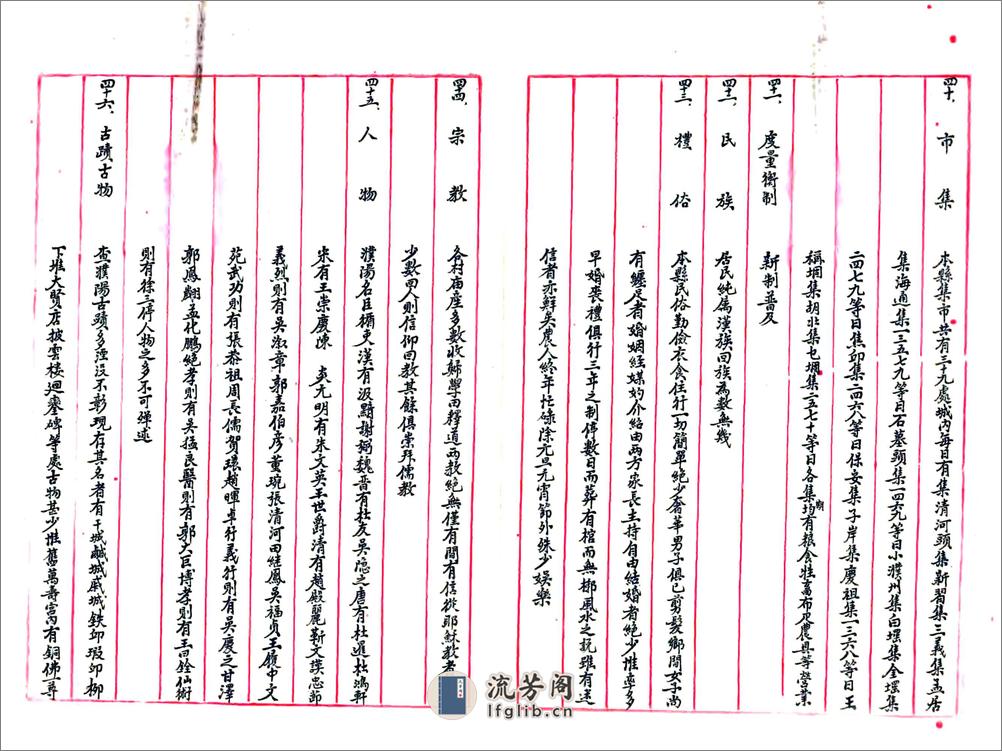 四十、市集
本縣集市共有三十九處城內每日有集清河頭集新習集三義集孟居
集海通集一三五七九等日石墓頭集一四六九等日小濮州集白堽集全堽集
二四七九等日焦邱集二四六八等日保安集子岸集慶祖集一三六八等日王
稱堌集胡北集屯堌集二五七十等日各集均有糧食牲畜布疋農具等營業
四十一、度量衡制
新制普及
四十二、民族
居民純屬漢族回族為數無幾
四十三、禮俗
本縣民俗勤儉衣食住行一切簡單絕少奢華男子俱已剪髮鄉間女子尚
有纏足者婚姻經媒妁介紹由兩方家長主持自由結婚者絕少惟率多
早婚喪禮俱行三年之制停數日而葬有棺而無槨風水之說雖有迷
信者亦鮮矣農人終年忙碌除元旦元宵節外殊少娛樂
四十四、宗教
各村庙產多數收歸學而釋道兩教絕無僅有間有信從耶穌教者
少數回人則信仰回教其餘俱崇拜儒教
四十五、人物
濮陽名臣循吏漢有汲黯謝弼魏晉有杜友吳隱之唐有杜暹杜鴻軒
宋有王崇慶陳 炎尤明有朱文英王世爵清有趙殿麗靳文謨忠節
義烈則有吳淑章郭嘉伯彥董琬張清河田继鳳吳福貞王履中文
苑武功則有張恭祖周長儒賀瓌趙暉卓行義行則有吳慶之甘澤
郭鳳翽孟化鵬絕孝則有吳猛良醫則有郭大巨博孝則有王回銓仙術
則有徐三停人物之多不可殫述
四十六、古蹟古物
查濮陽古蹟多湮沒不彰現存其名者有干城鹹城戚城鉄邱瑕邱柳
下堆大賢店披雲楼迴鑾碑等處古物甚少惟舊萬壽宮內有銅佛一尊
流芳阁
lfglib.cn